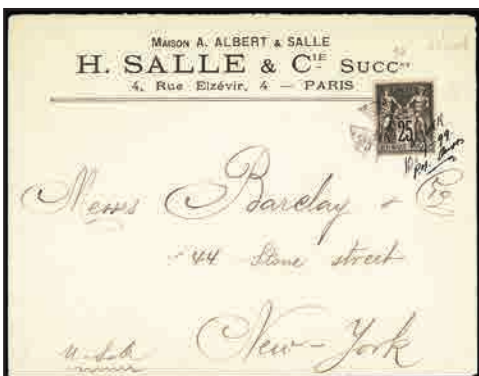 MAISON A. ALBERT & SALLE
H. SALLE & CIE SUCCRS
4, Rue Elzévir, 4 — PARIS
25
99
Messrs Barclay & Co
44 Stone street
New-York
U.S.A.